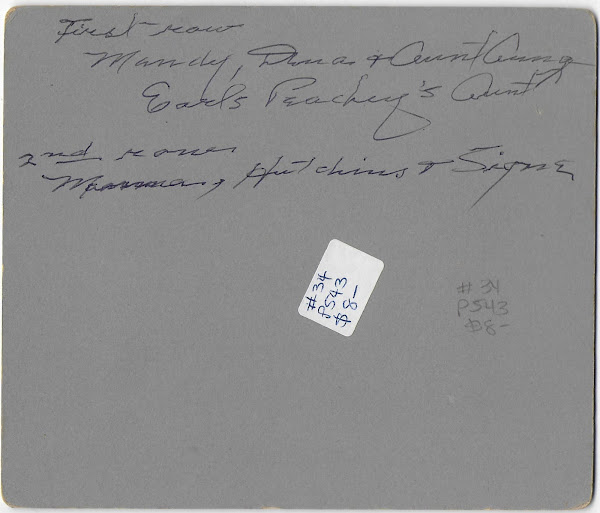 First row
Mandy, Dena & Aunt Anna
Earls Peachey's Aunt
2nd row
Momma, Hutchins & Signe
#34
P543
$8-
#34
P543
$8-